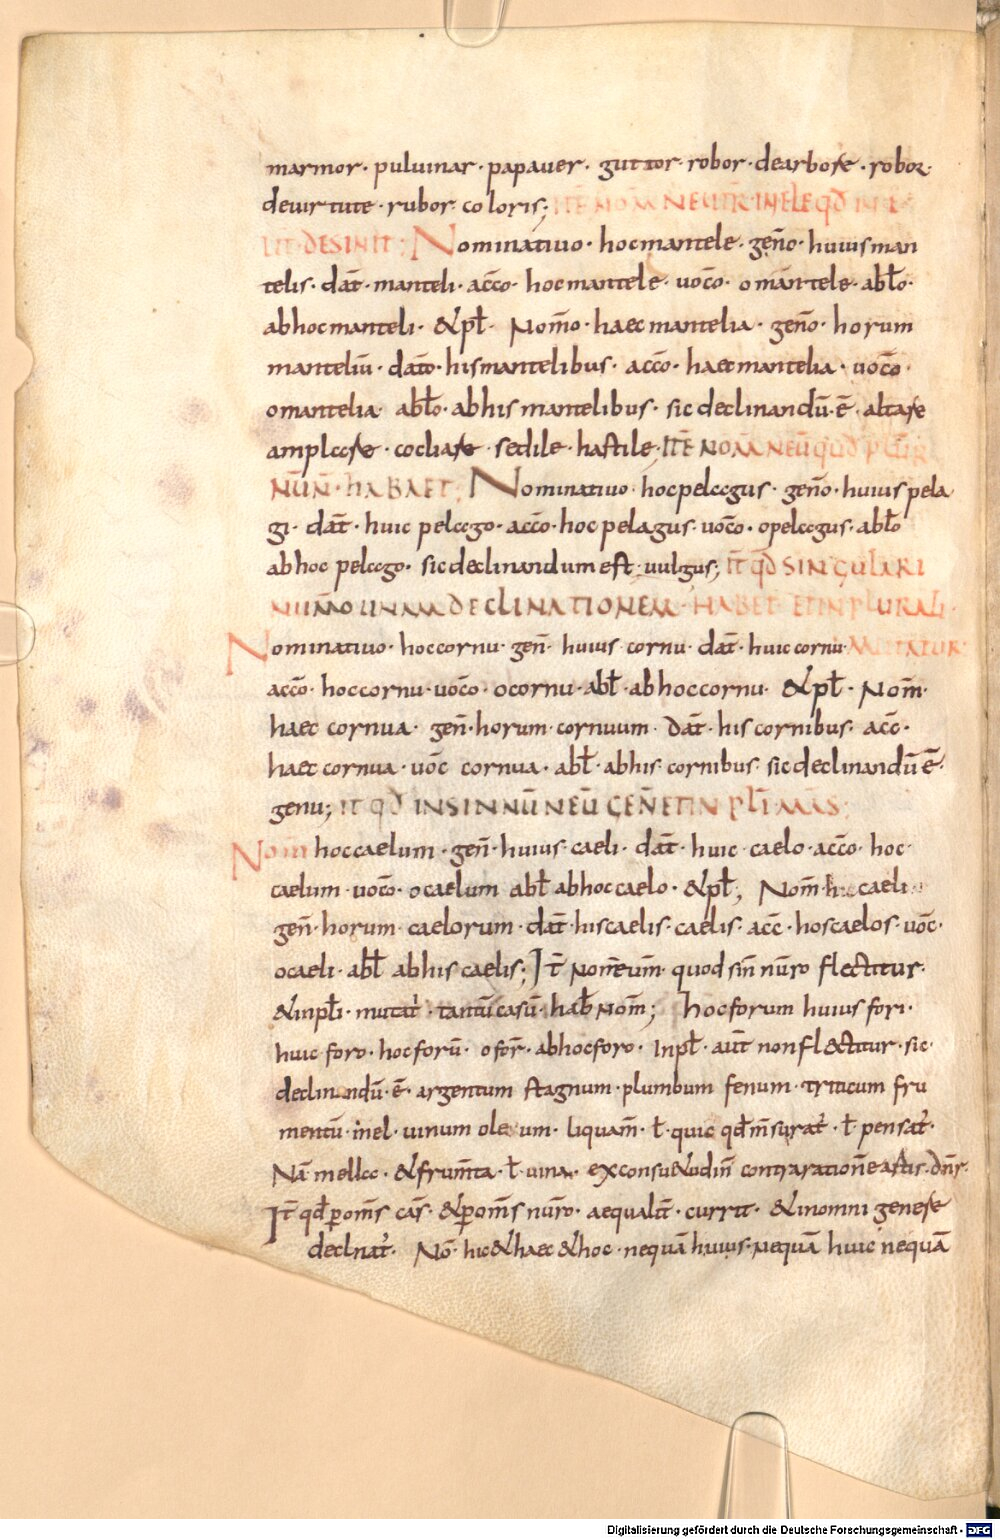 marmor · puluinar · papauer · guttor · robor · dearbore · robor
deuirtute · rubor coloris; ITĒ NOM̄ NEUTR̄ IN E LE
UT DESINIT; Nominatiuo · hocmantele · geño · huiusman
telis · dāt · manteli · acc̄o · hocmantele · uoc̄o · omantele · abƚo ·
abhocmanteli · &pƚ · Nom̄o · haec mantelia · geño · horum
manteliū · dat̄o · hismantelibus · acc̄o · haecmantelia · uoc̄o ·
omantelia abƚo · abhis mantelibus · sic declinandū · ē · altare
amplare · cocliare · sedile · hastile; ITĒ NOM̄ NEŪ QUOD PLUR̄
NUM̄ · N HABAET; Nominatiuo hocpelagus · geño · huius pela
gi · dāt · huic pelago · acc̄o · hoc pelagus · uoc̄o · opelagus · abƚo
abhoc pelago · sicdeclinandum est · uulgus; IT̄ qđ SINGULARI
NUMO UNAM DECLINATIONEM HABET ET IN PLURALI ·
Nominatiuo · hoccornu · geñ · huius cornu · dāt · huic cornu · MUTATUR
acc̄o · hoccornu · uoc̄o · ocornu · abƚ · abhoccornu · &pƚ · Nom̄ ·
haec cornua · geñ · horum · cornuum · dāt · his cornibus · acc̄ ·
haec cornua · uōc cornua · abƚ · abhis · cornibus · sicdeclinandū ē ·
genu; IT̄ qđ IN SIN NŪN NEŪ GEÑ ET IN PLĪ MAS;
Nom̄ hoccaelum · geñ · huius · caeli · dāt · huic · caelo · acc̄o · hoc
caelum · uoc̄o · ocaelum abƚ abhoccaelo · &pƚ; Nom̄ · hi caeli ·
geñ · horum caelorum · dāt · hiscaelis · caelis · acc̄ · hoscaelos · uōc ·
ocaeli · abƚ abhis caelis; IT̄ Nom̄ neum̄ quod sin̄ nūro flectitur ·
&inpƚi · mutat̄ · tantū casū · hab̄ Nom̄; hocforum huius fori ·
huic foro · hocforū · ofor̄ · abhocforo · Inpƚ · aūt nonfl&ctitur · sic ·
declinandū · ē · argentum stagnum · plumbum fenum · triticum fru
mentū · mel · uinum oleum · liquam̄ · ƚ · quic qđmsurat̄ · ƚ pensat̄ ·
Nā mella · &frum̄ta · ƚ · uina · exconsu&udin̄ contrarationē artis · dn̄r ·
IT̄ qđ p̱om̄s cas̄ · &p̱om̄s nūro · aequalit̄ · currit · &inomni genere
declnat̄ · Nō · hic&haec&hoc · nequā huius · nequā huic nequā
Digitalisierung gefördert durch die Deutsche Forschungsgemeinschaft - DFG